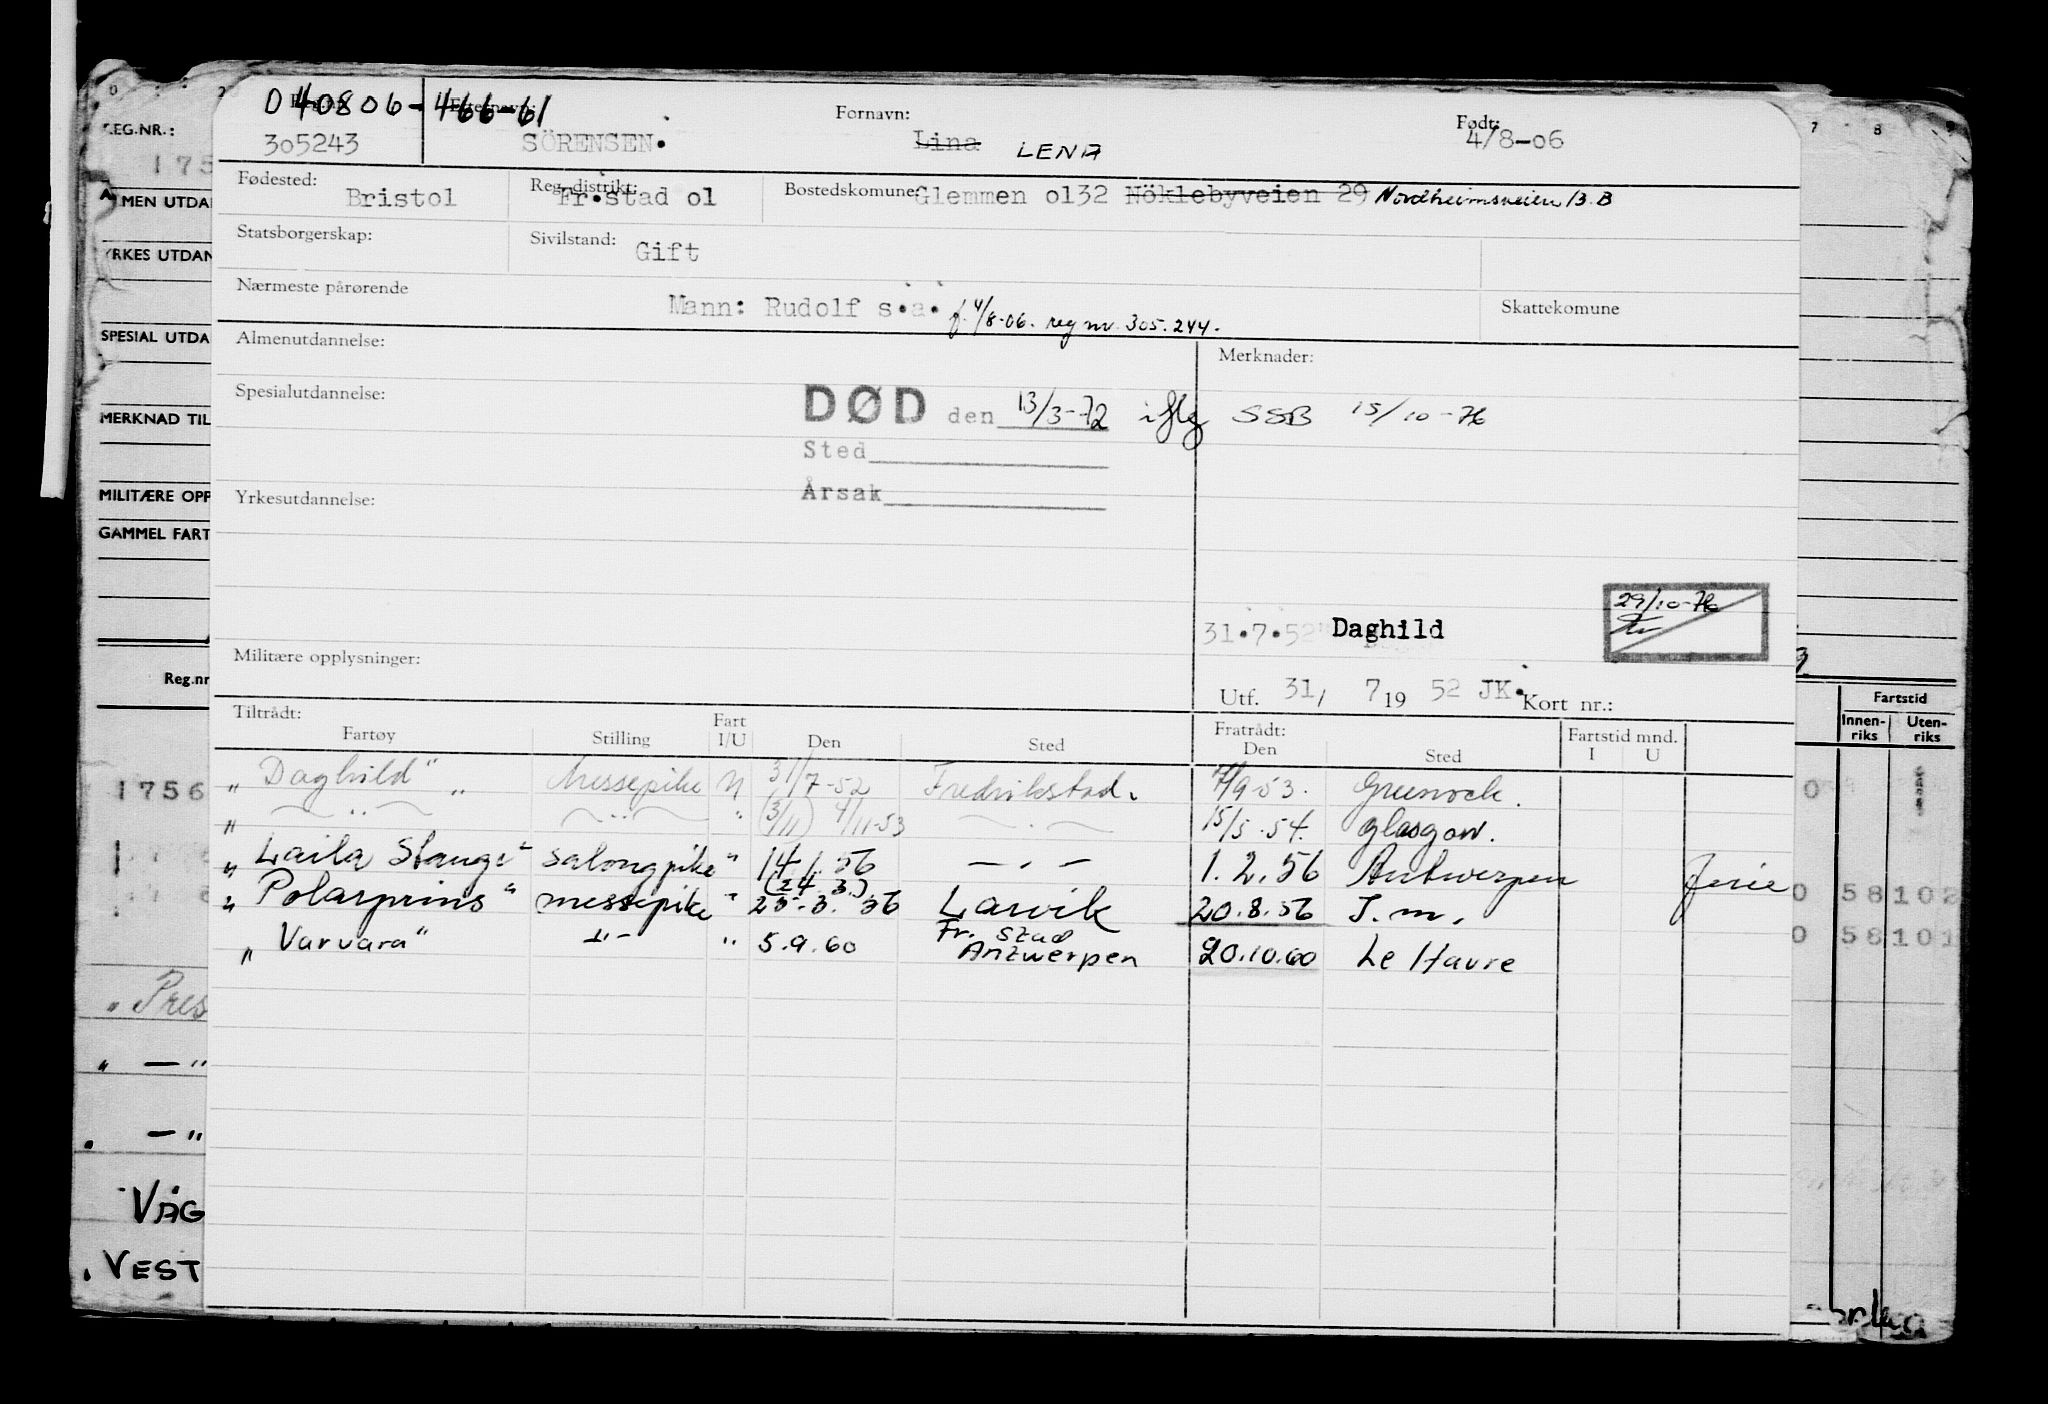 D 40806-466-61
Reg.nr.: Etternavn: Fornavn: Født:
305243 SÖRENSEN. Lina LENA 4/8-06
Fødested: Bristol Reg. distrikt: Fr.stad 01 Bostedskomune: Glemmen 0132 Nöklebyveien 29 Nordheimsveien 13. B
Statsborgerskap: Sivilstand: Gift
Nærmeste pårørende Mann: Rudolf s.a. f. 4/8-06. reg nr. 305.244. Skattekomune
Almenutdannelse: Merknader:
Spesialutdannelse: DØD den 13/3-72 iflg SSB 15/10-76
Sted
Årsak
Yrkesutdannelse:
29/10-76
31.7.52 Daghild
Militære opplysninger:
Utf. 31/ 7 19 52 JK. Kort nr.:
Tiltrådt: Fratrådt:
Fartøy Stilling Fart I/U Den Sted Den Sted Fartstid mnd. I U
"Daghild" Messepike U 31/7-52 Fredrikstad. 7/9-53. Greenock.
" — " — — " — " (3/11) 4/11-53 — " — 15/5-54. Glasgow.
"Laila Stange" salongpike " 14/1.56 — " — 1.2.56 Antwerpen ferie
"Polarprins" messepike " (24.3.) 25-3.56 Larvik 20.8.56 I.m.
"Varvara" -"- " 5.9.60 Fr. Stad Antwerpen 20.10.60 Le Havre
REG.NR.:
175
ALMEN UTDA
YRKES UTDAN
SPESIAL UTDA
MERKNAD TIL
MILITÆRE OPP
GAMMEL FART
Reg.nr
1756
"Pres
" — "
. — "
VÅG
VEST
7 8
Fartstid
Innen-riks Uten-riks
0
0 58102
0 58101